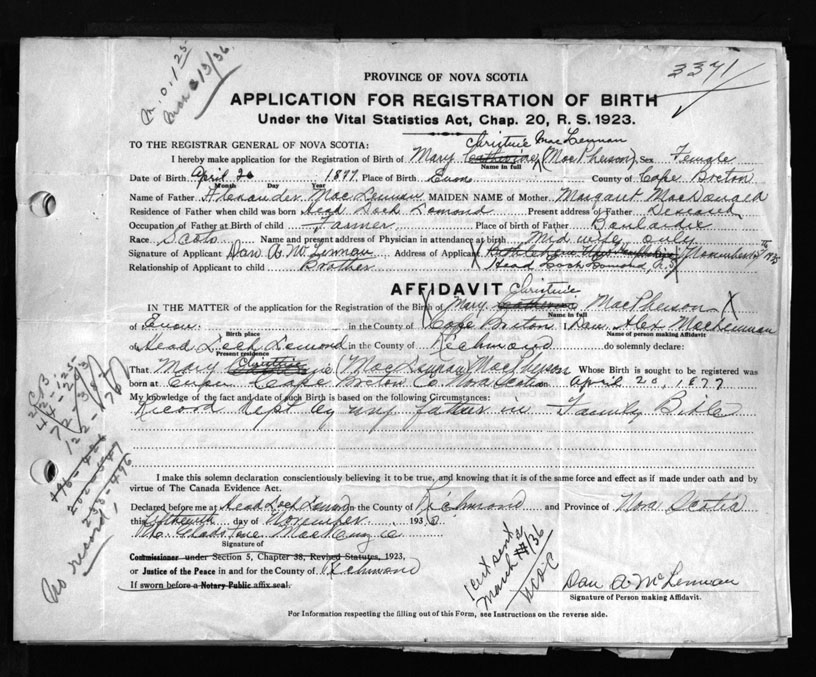 3371
PROVINCE OF NOVA SCOTIA
APPLICATION FOR REGISTRATION OF BIRTH
Under the Vital Statistics Act, Chap. 20, R. S. 1923.
TO THE REGISTRAR GENERAL OF NOVA SCOTIA:
Christine MacLennan
I hereby make application for the Registration of Birth of Mary Catherine (MacPherson) Sex Female
Name in full
Date of Birth April 20 1877 Place of Birth Enon County of Cape Breton
Month Day Year
Name of Father Alexander MacLennan MAIDEN NAME of Mother Margaret MacDonald
Residence of Father when child was born Head Loch Lomond Present address of Father Deceased
Occupation of Father at Birth of child Farmer Place of birth of Father Boulardie
Race Scots Name and present address of Physician in attendance at birth Mid wife only
Signature of Applicant Dan A. McLennan Address of Applicant
Relationship of Applicant to child Brother Head Loch Lomond
AFFIDAVIT
Christine
IN THE MATTER of the application for the Registration of the Birth of Mary Catherine MacPherson
Name in full
of Enon in the County of Cape Breton Dan Alex MacLennan
Birth place Name of person making Affidavit
of Head Loch Lomond in the County of Richmond do solemnly declare:
Present residence
That Mary Christine (MacLennan) MacPherson Whose Birth is sought to be registered was
born at Enon Cape Breton Co. Nova Scotia April 20, 1877
My knowledge of the fact and date of such Birth is based on the following Circumstances:
Record kept by my father in Family Bible
I make this solemn declaration conscientiously believing it to be true, and knowing that it is of the same force and effect as if made under oath and by
virtue of The Canada Evidence Act.
Declared before me at Head Loch Lomond in the County of Richmond and Province of Nova Scotia
this day of November, 193
Signature of
Commissioner under Section 5, Chapter 38, Revised Statutes, 1923,
or Justice of the Peace in and for the County of Richmond
If sworn before a Notary Public affix seal.
No record
March
/36
Dan A McLennan
Signature of Person making Affidavit.
For Information respecting the filling out of this Form, see Instructions on the reverse side.